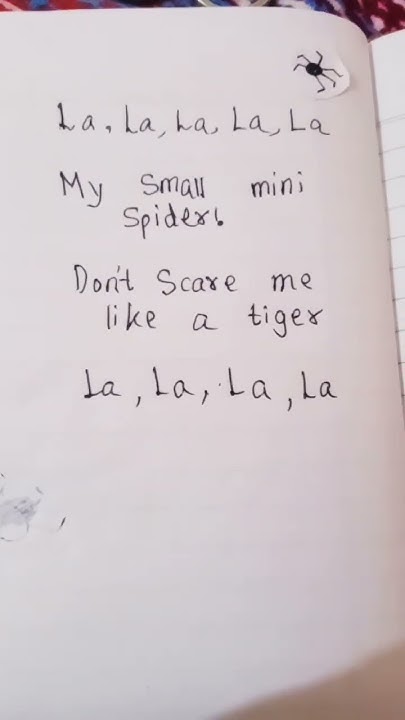 La, La, La, La, La
My Small mini
Spider!
Don't Scare me
like a tiger
La, La, La, La